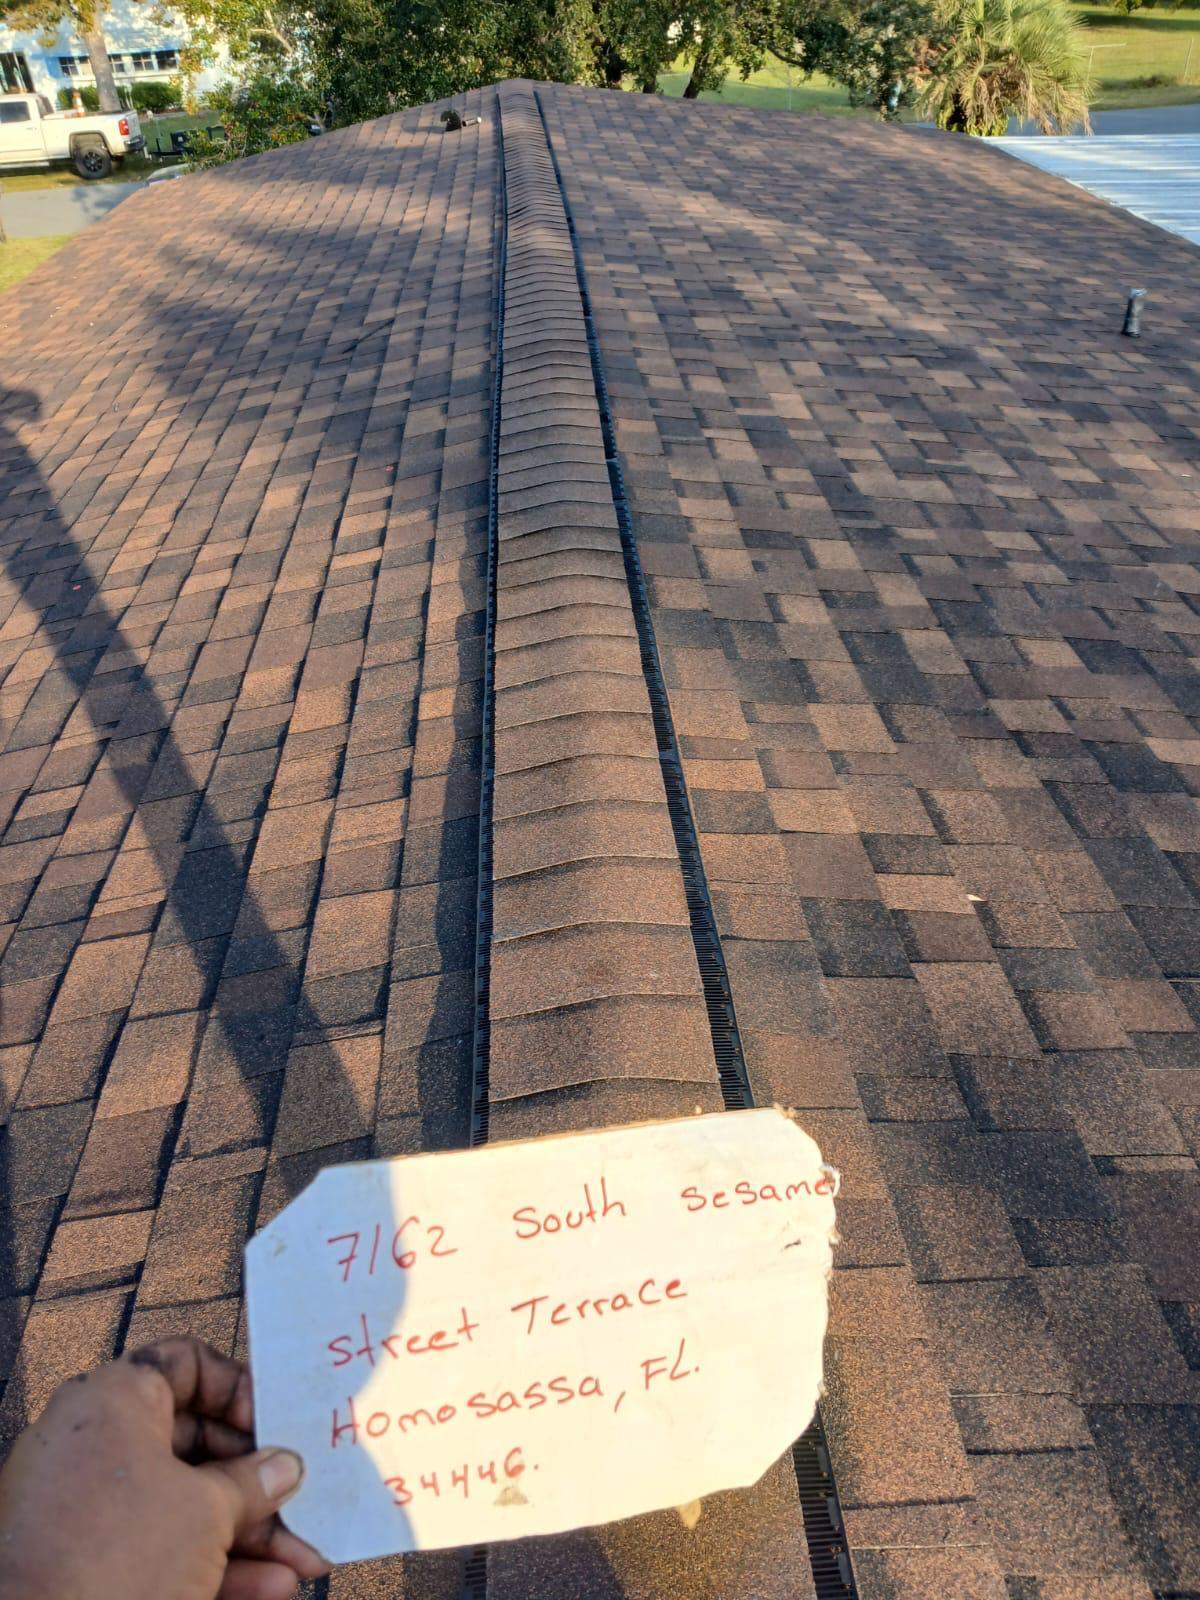 7162 South Sesame
Street Terrace
Homosassa, FL.
34446.